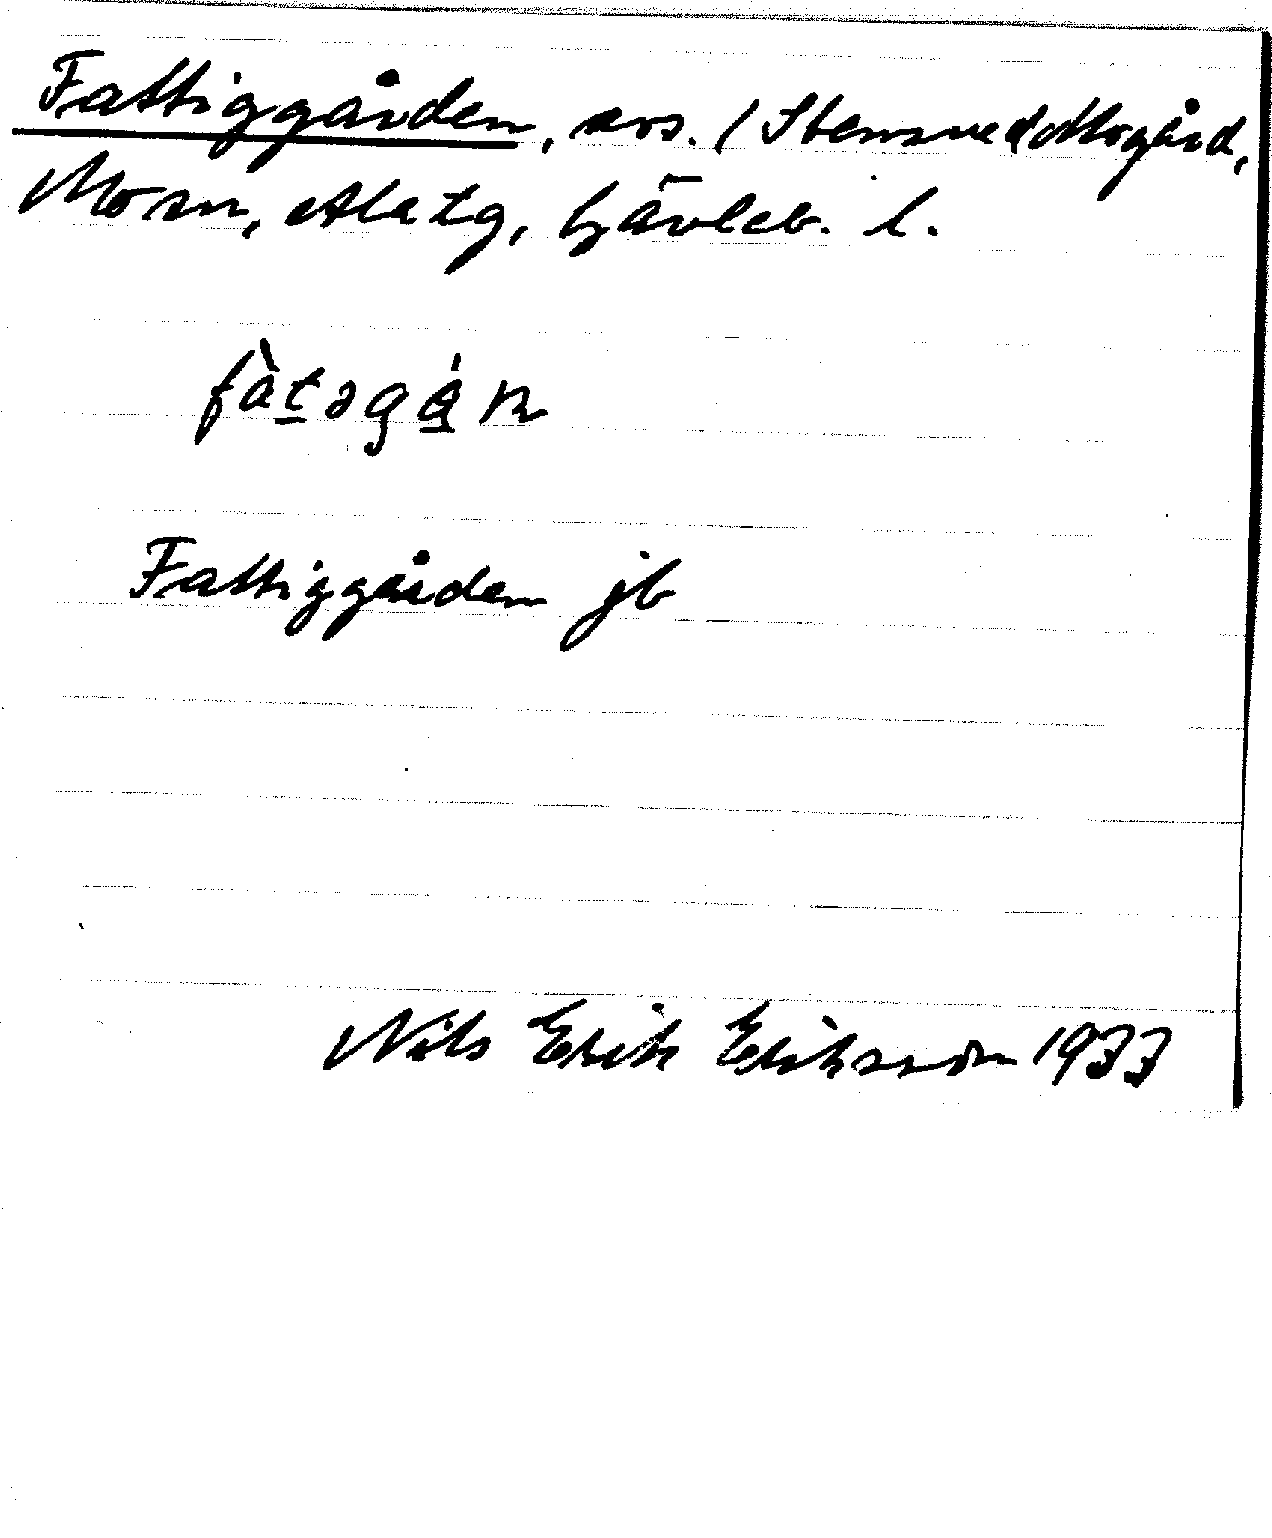 Fattiggården, avs. / Stensved Mogård,
Mo sn, Ala tg, Gävleb. l.
fàtəgɑ́n
Fattiggården jb
Nils Erik Eriksson 1933